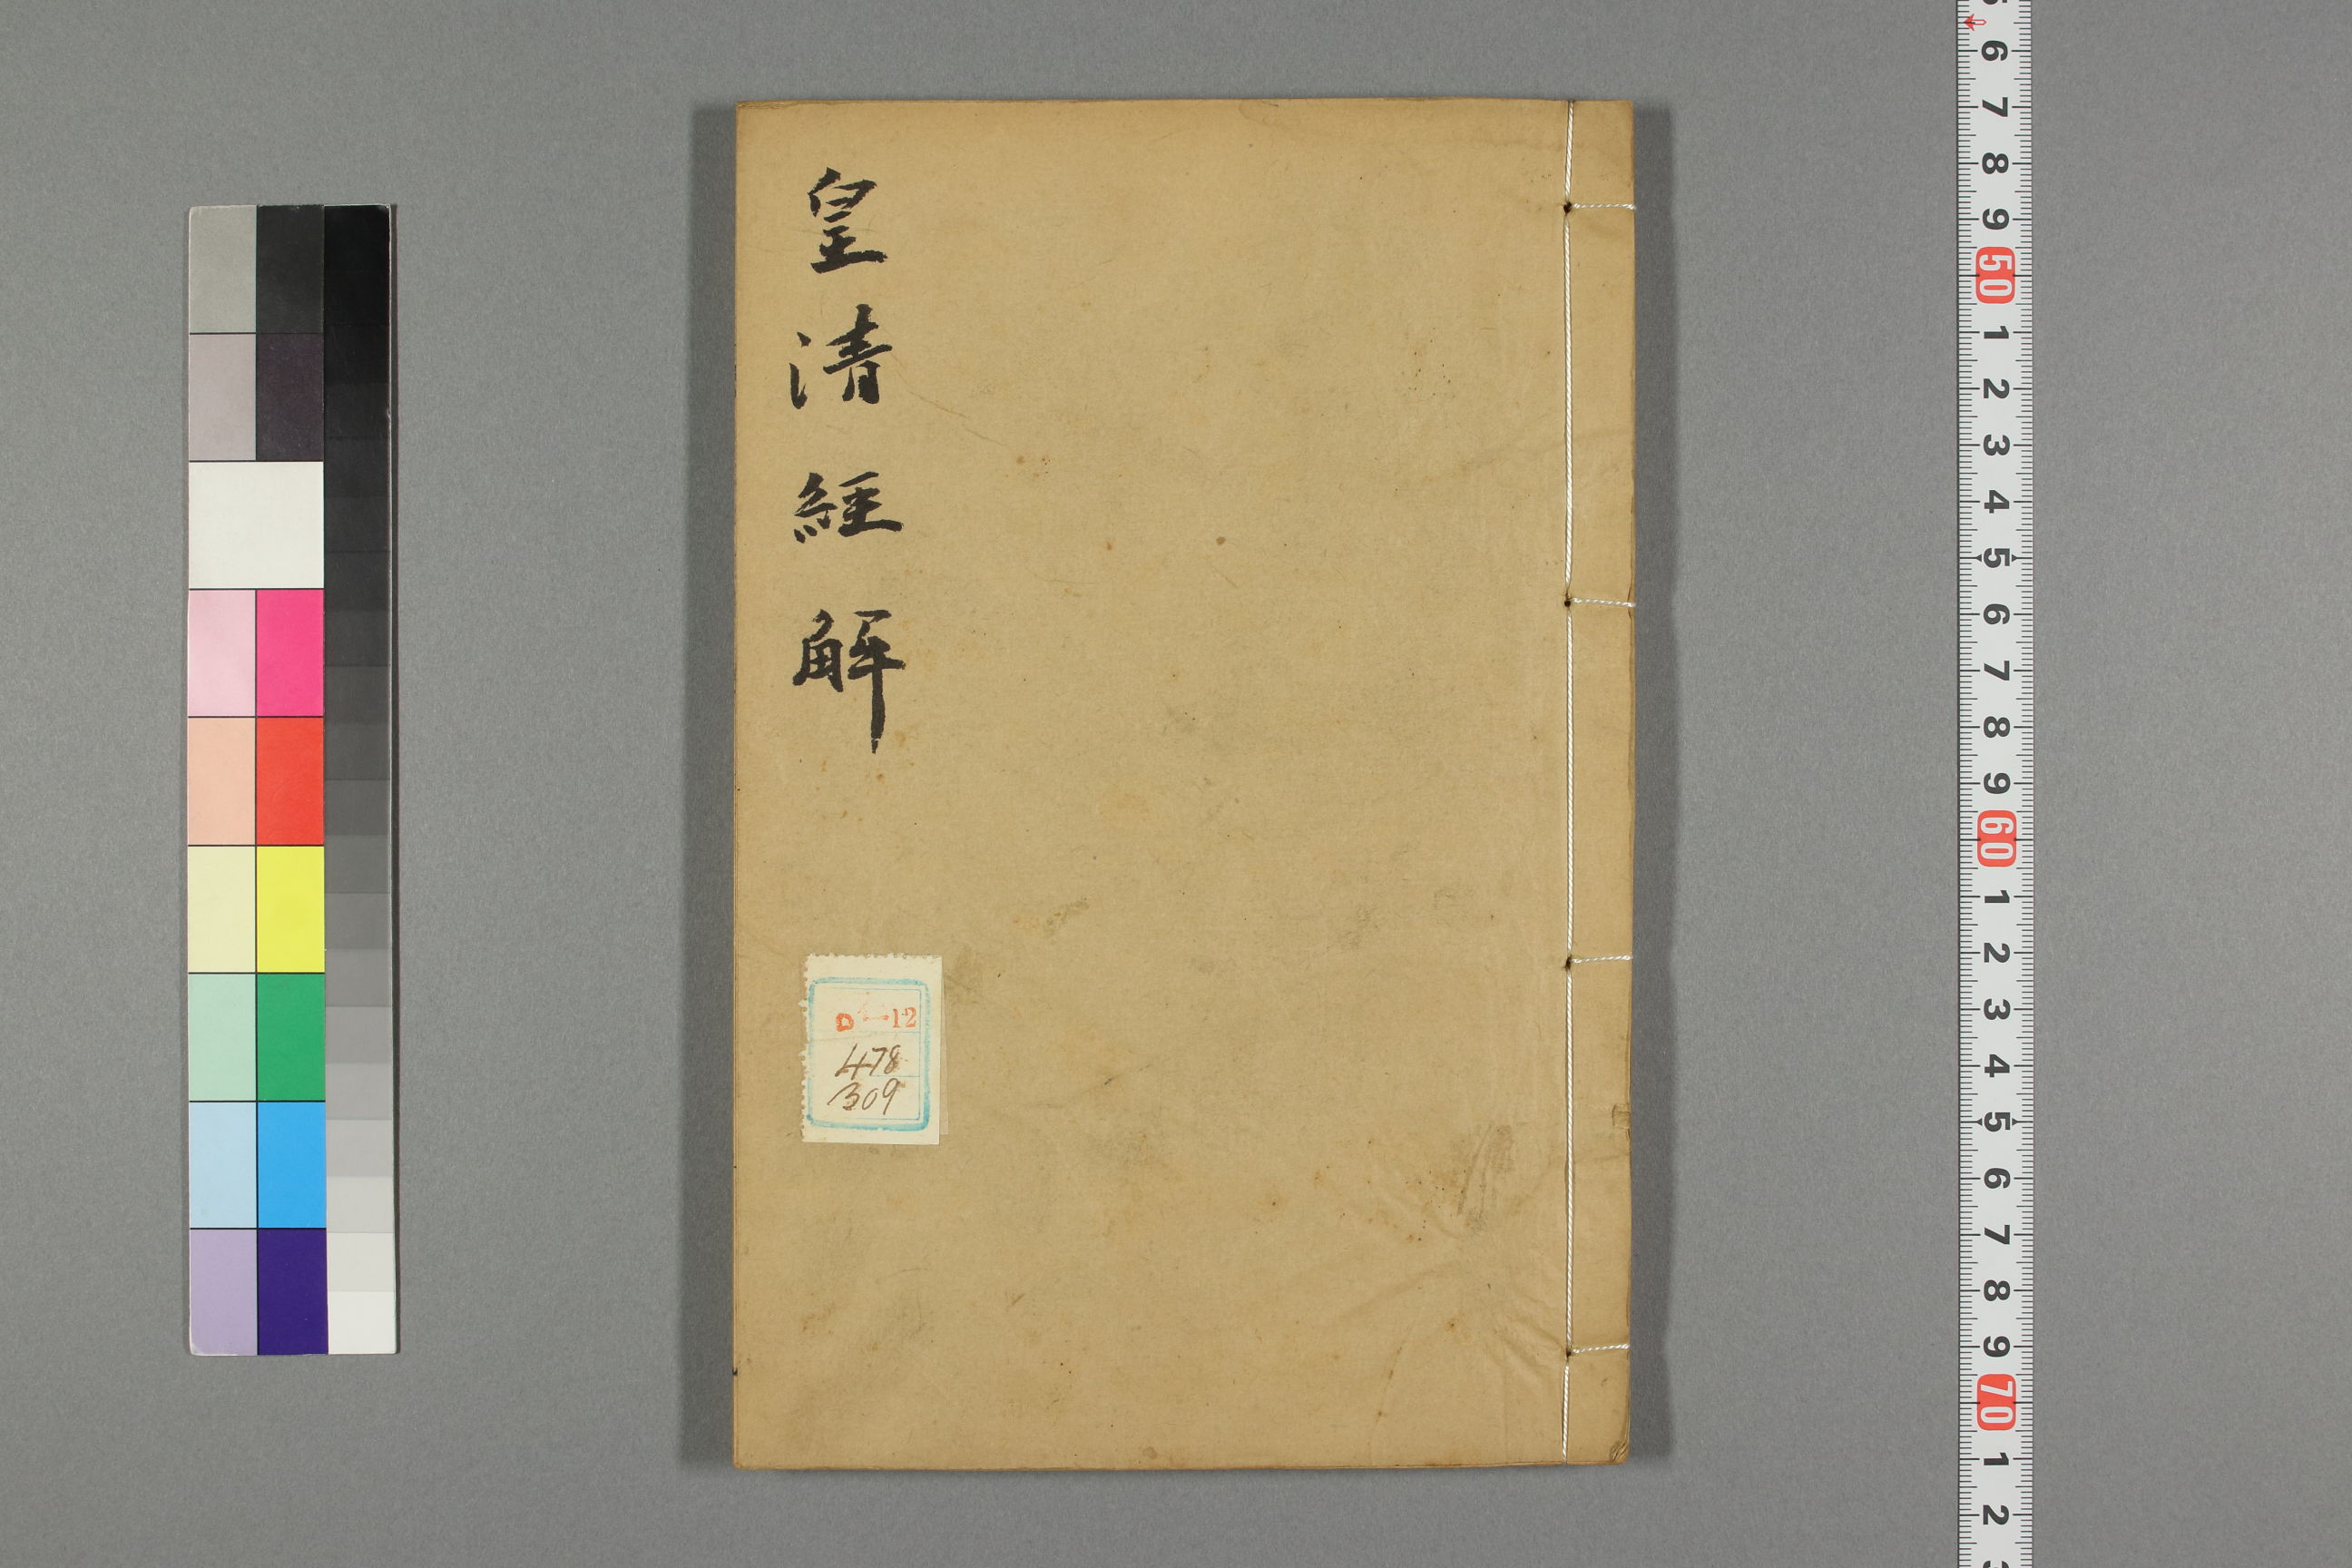 皇清經解
D-12
478
309
6
7
8
9
50
1
2
3
4
5
6
7
8
9
60
1
2
3
4
5
6
7
8
9
70
1
2